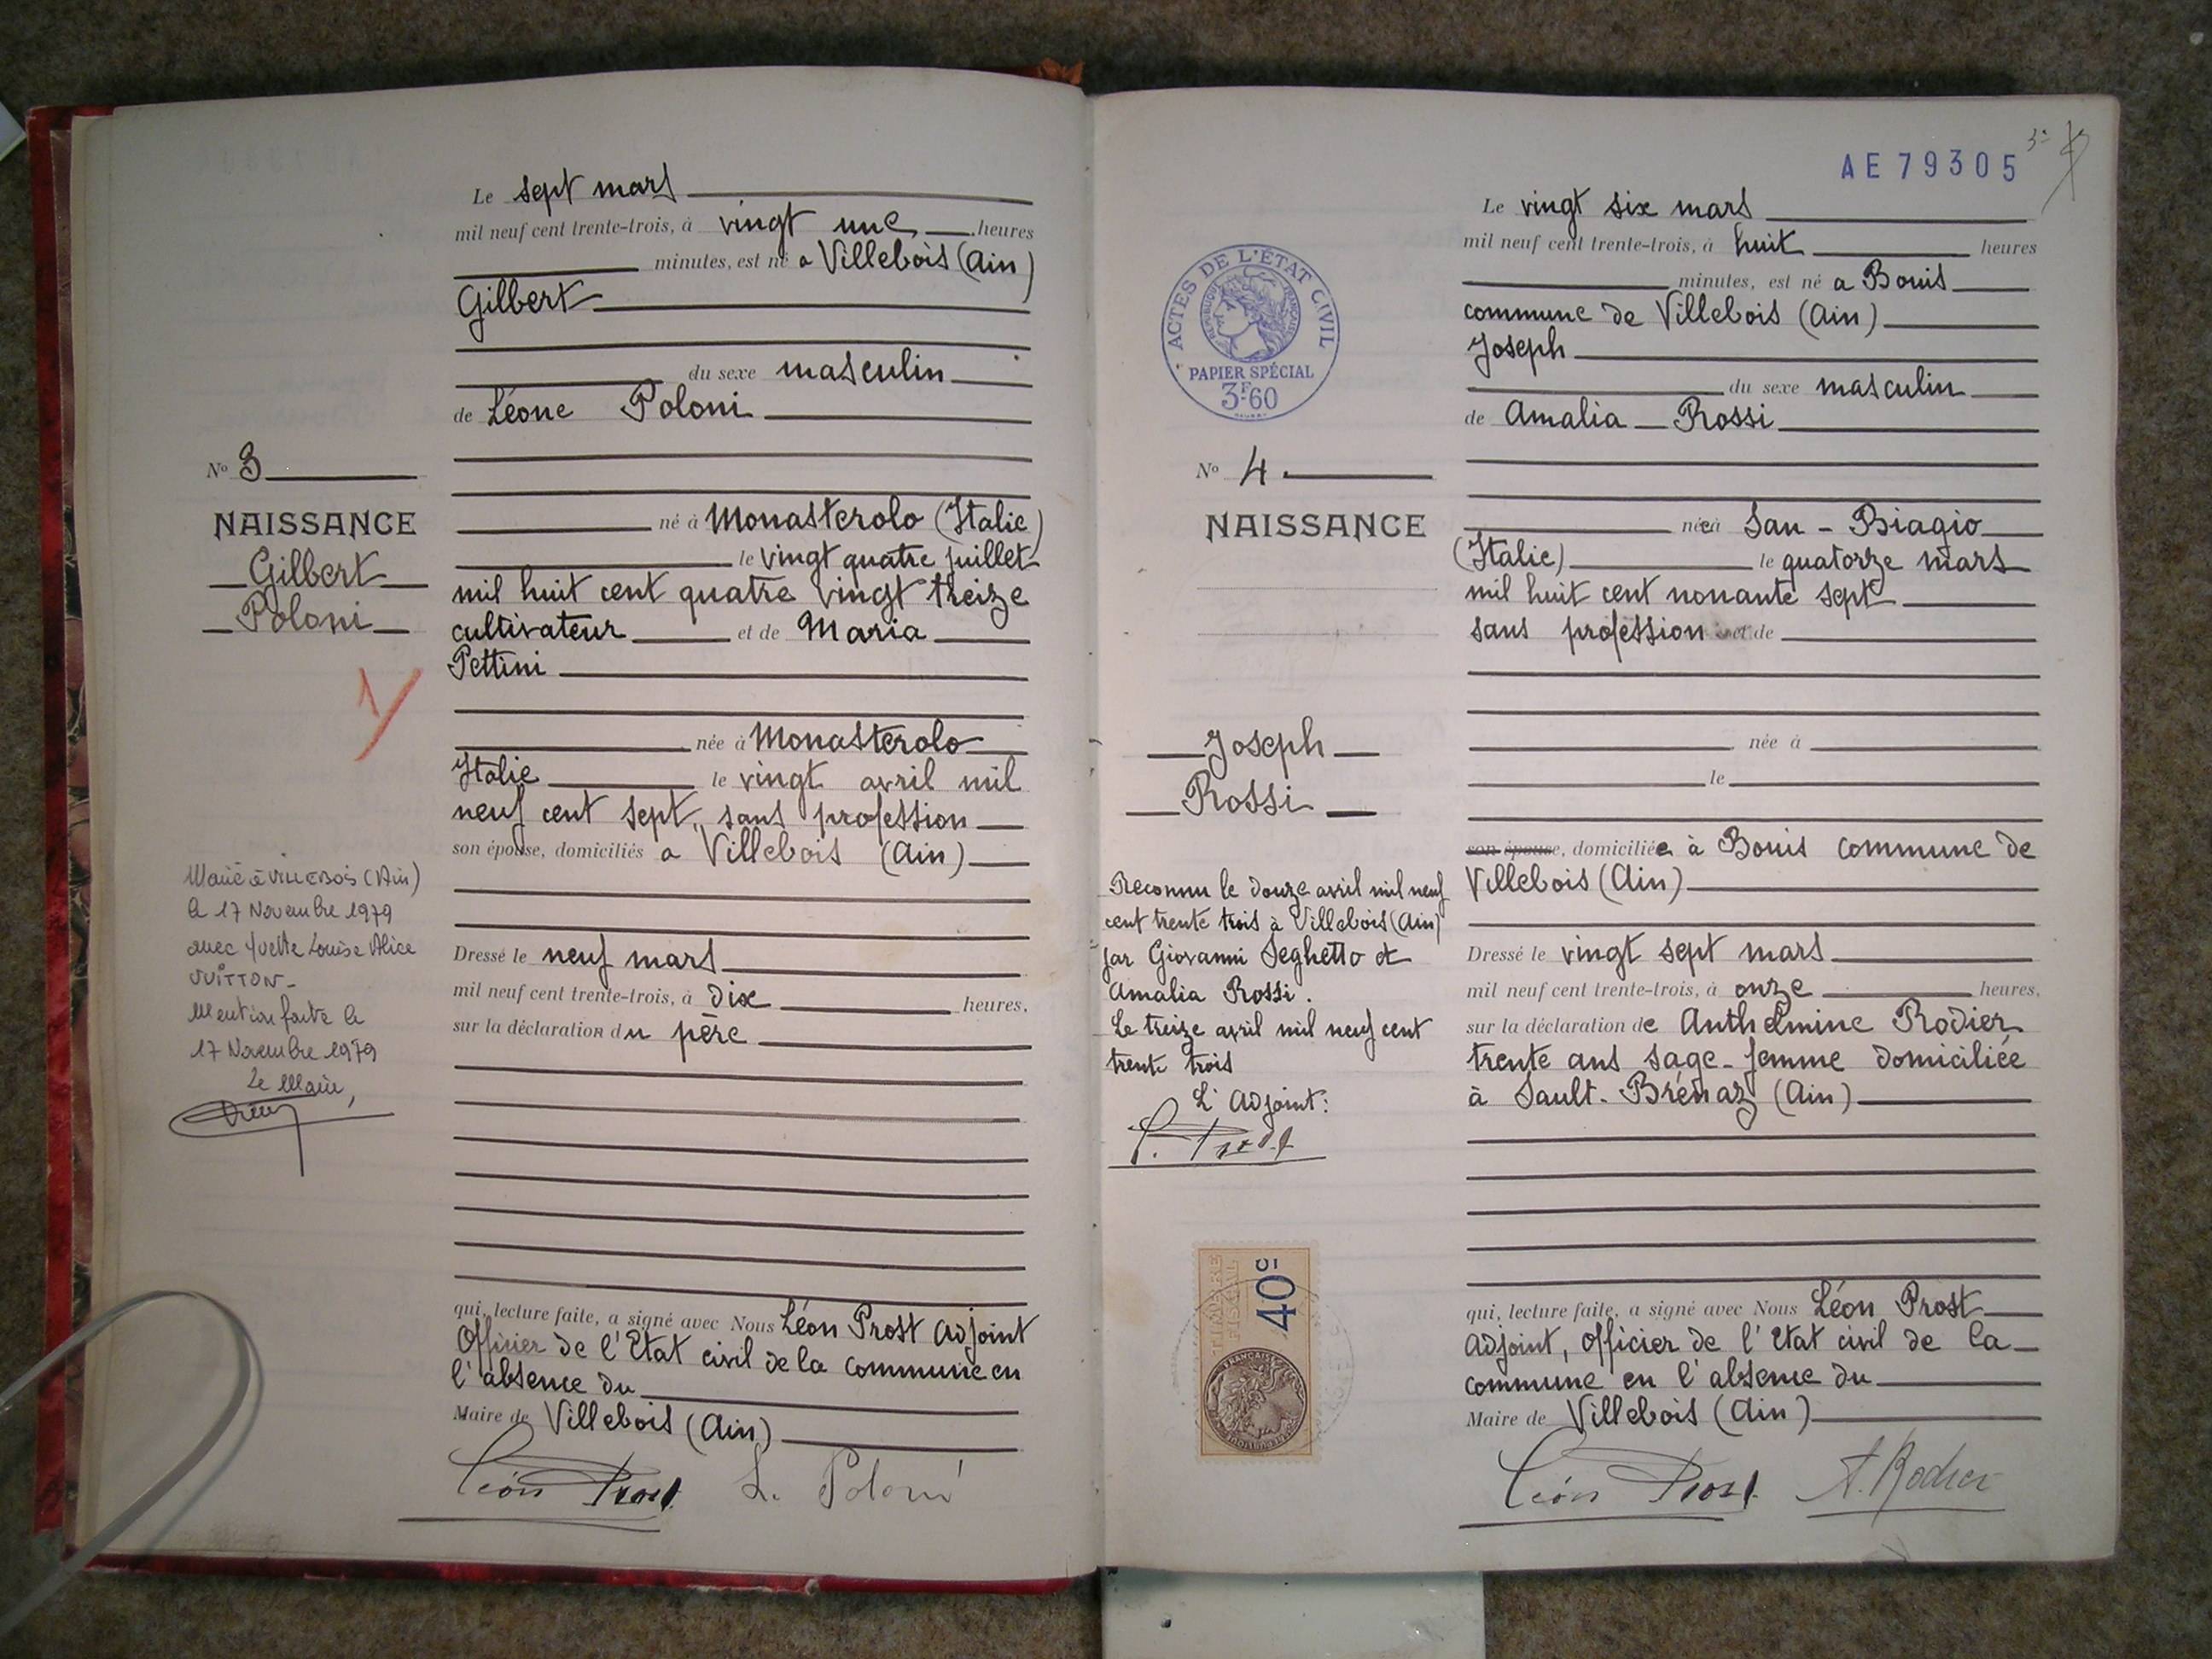 Le sept mars
mil neuf cent trente-trois, à vingt une heures
minutes, est né a Villebois (Ain)
Gilbert
du sexe masculin
de Léone Poloni
Nº 3
NAISSANCE
Gilbert
Poloni
né à Monasterolo (Italie)
le vingt quatre juillet
mil huit cent quatre vingt treize
cultivateur et de Maria
Pettini
1/
née à Monasterolo
Italie le vingt avril mil
neuf cent sept, sans profession
son épouse, domiciliés a Villebois (Ain)
Marié à VILLEBOIS (Ain)
le 17 Novembre 1979
avec Yvette Louise Alice
VUITTON-
Mention faite le
17 Novembre 1979
Le Maire,
Dressé le neuf mars
mil neuf cent trente-trois, à dix heures,
sur la déclaration du père
qui, lecture faite, a signé avec Nous Léon Prost adjoint
Officier de l'Etat civil de la commune en
l'absence du
Maire de Villebois (Ain)
Léon Prost L. Poloni
AE 79305
Le vingt six mars
mil neuf cent trente-trois, à huit heures
minutes, est né a Bouis
commune de Villebois (Ain)
Joseph
du sexe masculin
de Amalia Rossi
ACTES DE L'ÉTAT CIVIL
RÉPUBLIQUE FRANÇAISE
PAPIER SPÉCIAL
3F60
Nº 4
NAISSANCE
Joseph
Rossi
née à San-Biagio
(Italie) le quatorze mars
mil huit cent nonante sept
sans profession et de
née à
le
son épouse, domiciliée à Bouis commune de
Villebois (Ain)
Reconnu le douze avril mil neuf
cent trente trois à Villebois (Ain)
par Giovanni Seghetto et
Amalia Rossi.
Le treize avril mil neuf cent
trente trois
L'Adjoint:
L. Prost
Dressé le vingt sept mars
mil neuf cent trente-trois, à onze heures,
sur la déclaration de Anthelmine Rodier
trente ans sage-femme domiciliée
à Sault-Brénaz (Ain)
TIMBRE
FISCAL
40c
qui, lecture faite, a signé avec Nous Léon Prost
adjoint, officier de l'Etat civil de la
commune en l'absence du
Maire de Villebois (Ain)
Léon Prost A. Rodier